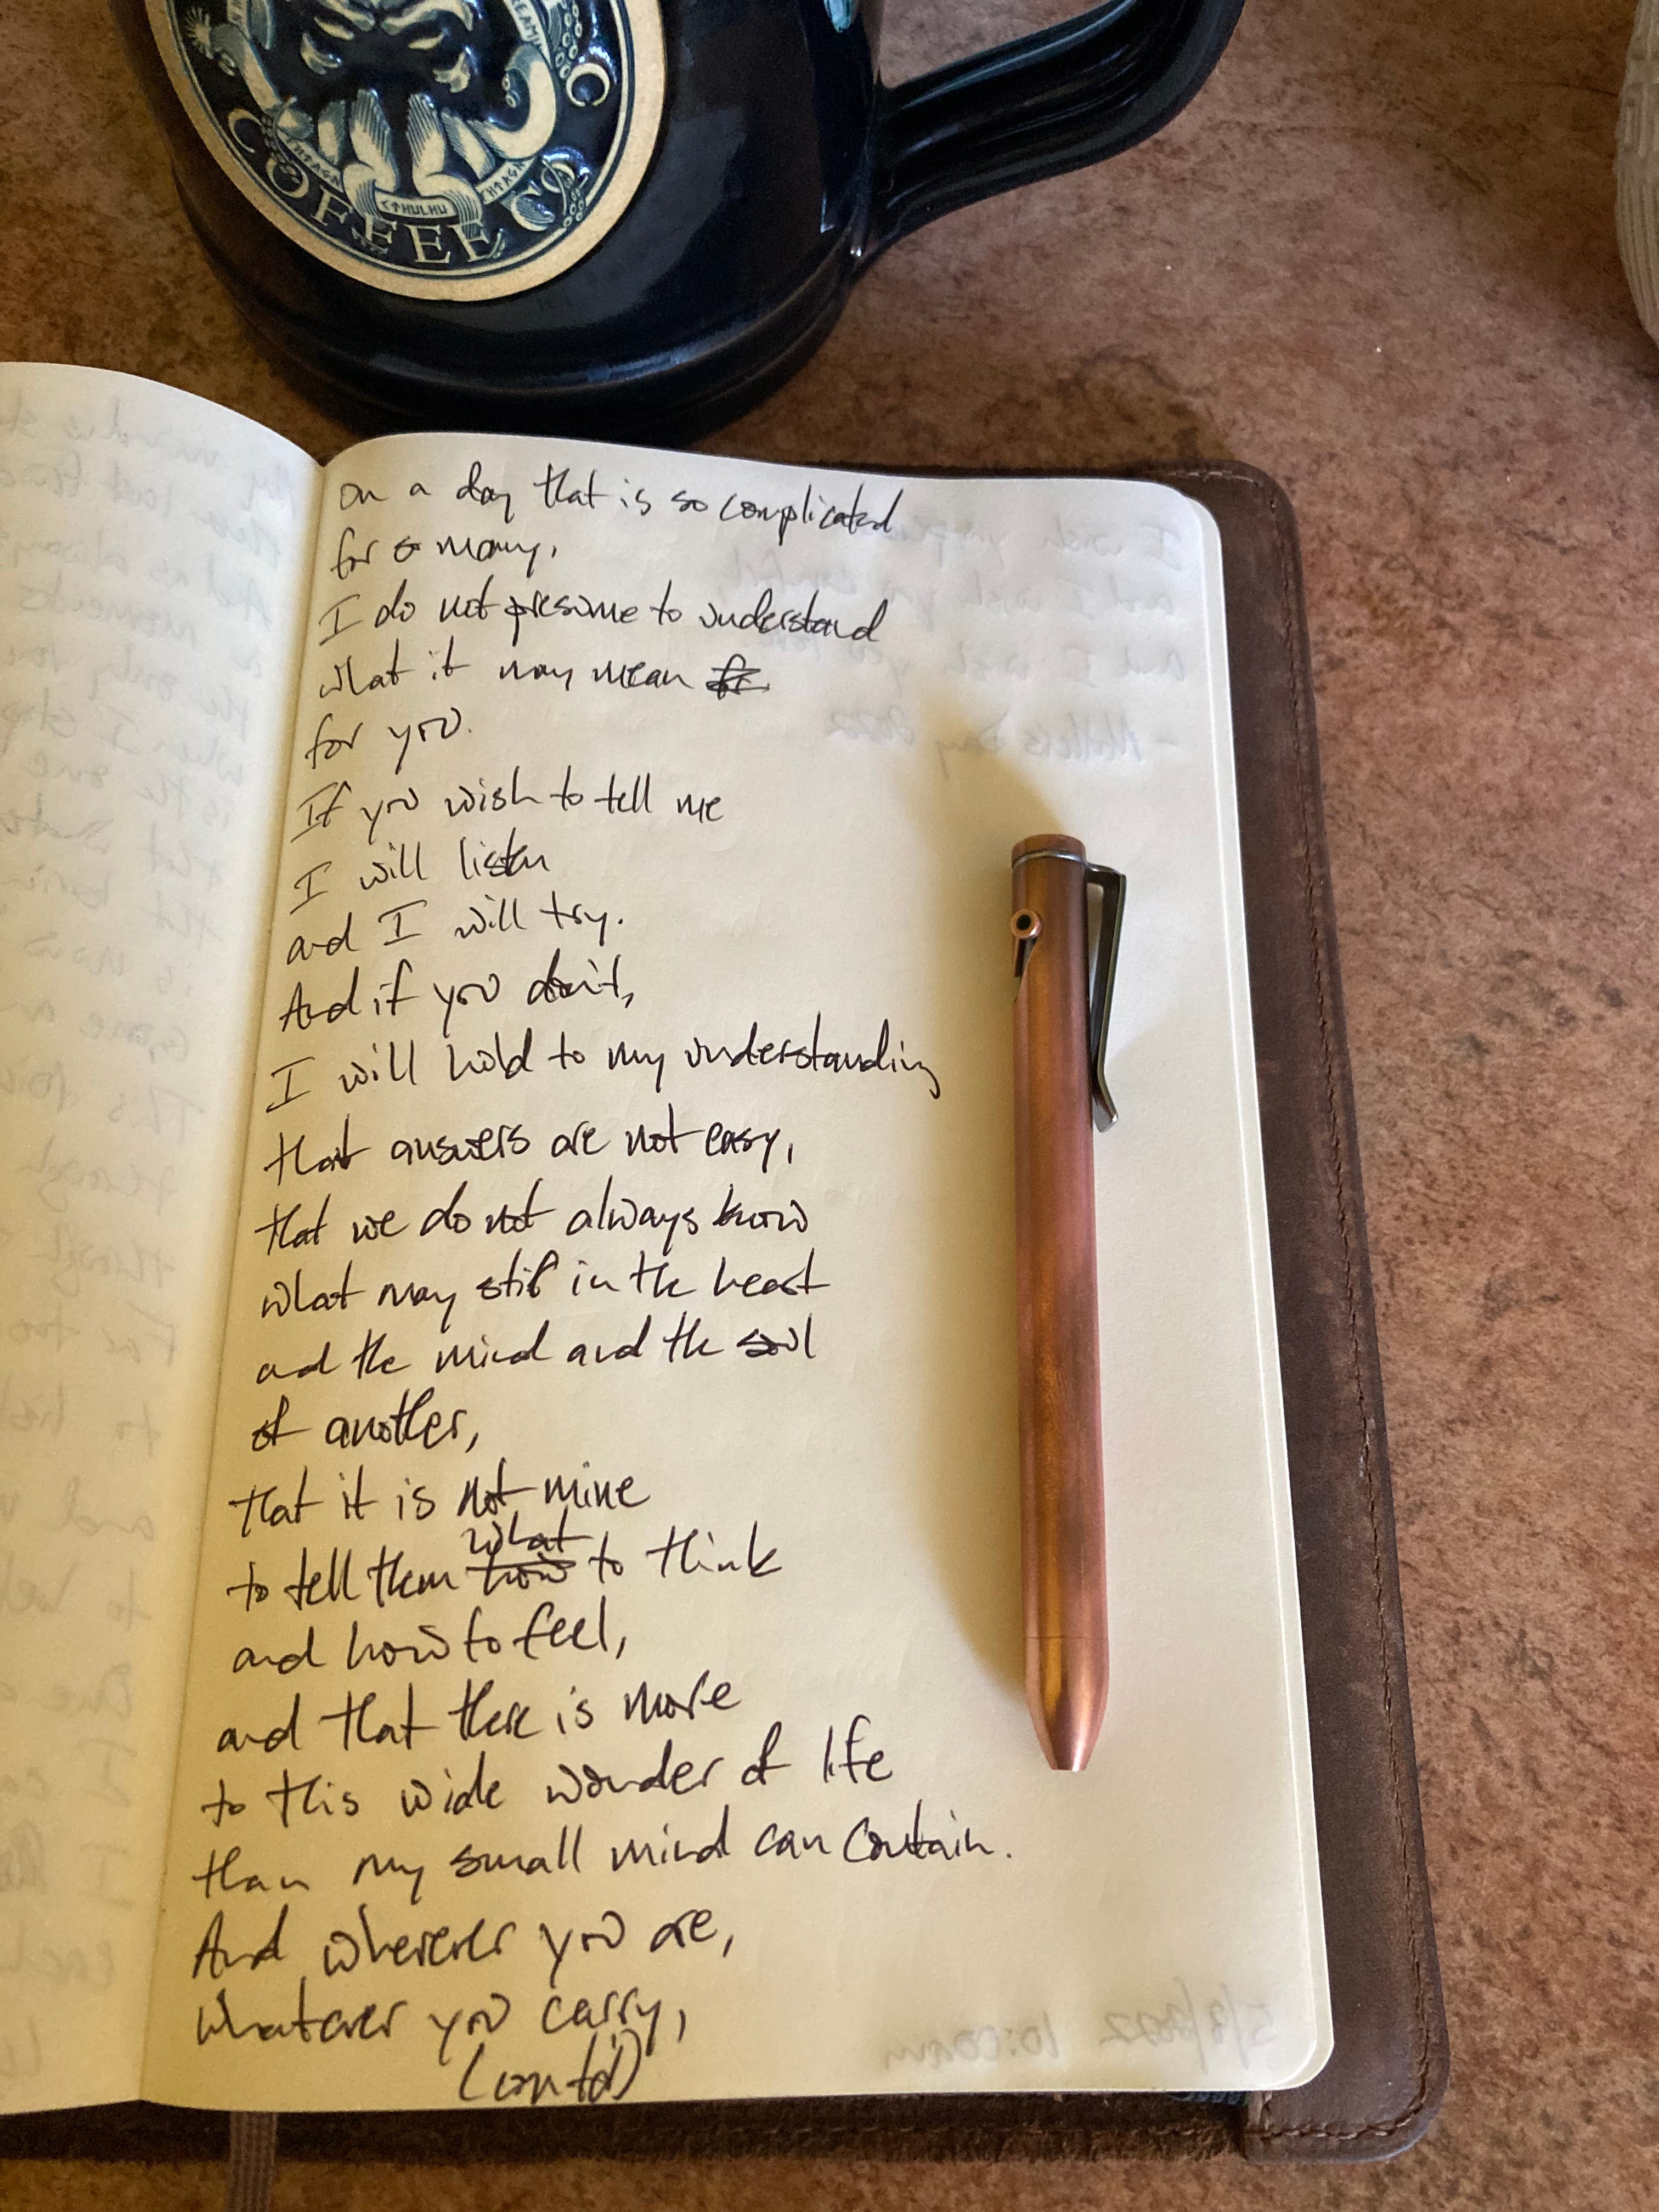 C
COFFEE CO
CTHULHU
FHTAGN
on a day that is so complicated
for so many,
I do not presume to understand
what it may mean for
for you.
If you wish to tell me
I will listen
and I will try.
And if you don't,
I will hold to my understanding
that answers are not easy,
that we do not always know
what may stir in the heart
and the mind and the soul
of another,
that it is not mine
what
to tell them how to think
and how to feel,
and that there is more
to this wide wonder of life
than my small mind can contain.
And wherever you are,
whatever you carry,
(cont'd)
I wish you
and I wish you comfort,
and I wish you
- Mother's Day 2022
5/8/2022 10:00am